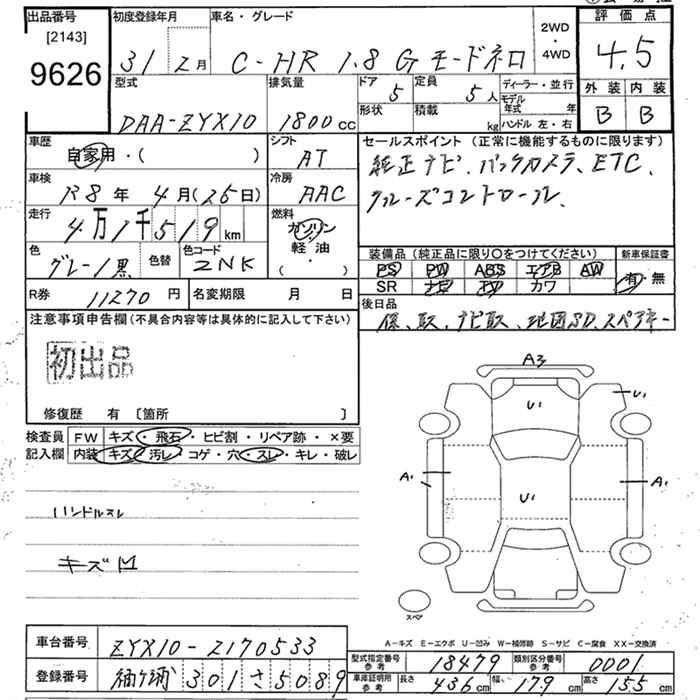 出品番号 初度登録年月 車名・グレード 評価点
[2143] 2WD・4WD
9626 31 2月 C-HR 1.8 G モードネロ 4.5
外装 内装
B B
型式 排気量 ドア 5 定員 5人 ディーラー・並行
DAA-ZYX10 1800cc 形状 積載 kg モデル年式 年
ハンドル 左・右
車歴 シフト セールスポイント(正常に機能するものに限ります)
自家用・( ) AT 純正ナビ、バックカメラ、ETC、
車検 冷房 クルーズコントロール、
R8年 4月(25日) AAC
走行 燃料
4万1千519km ガソリン
軽油
( )
色 色替 色コード 装備品(純正品に限り○をつけてください) 新車保証書
グレー/黒 2NK PS PW ABS エアB AW 有・無
SR ナビ TV カワ
R券 11270円 名変期限 月 日 後日品
保、取、ナビ取、地図SD、スペアキー
注意事項申告欄(不具合内容等は具体的に記入して下さい)
初出品
修復歴 有 〔箇所 〕
検査員 FW キズ・飛石・ヒビ割・リペア跡・×要
記入欄 内装 キズ・汚レ・コゲ・穴・スレ・キレ・破レ
ハンドルスレ
キズ凹
A3
U1 U1
A1 U1 A1
スペア
A-キズ E-エクボ U-凹み W-補修跡 S-サビ C-腐食 XX-交換済
車台番号 ZYX10-2170533
型式指定番号 参考 18479 類別区分番号 参考 0001
登録番号 袖ケ浦 301 さ 5089
車庫証明所 参考 長さ 436cm 幅 179cm 高さ 155cm